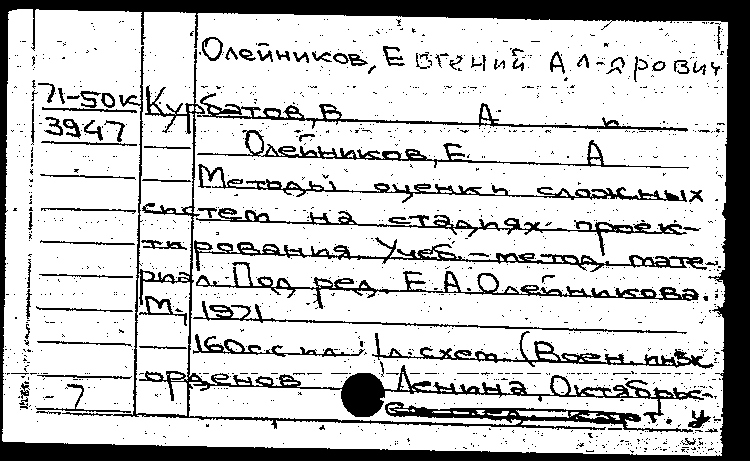 Олейников, Евгений Ал-ярович
71-50к Курбатов, В А п
3947
Олейников, Е. А
Методы оценки сложных
систем на стадиях проек-
тирования. Учеб.-метод. мате-
риал. Под ред. Е.А. Олейникова.
М., 1971
160с. с ил.; 1 л. схем. (Воен. инж.
орденов Ленина, Октябрьс-
7 карт.